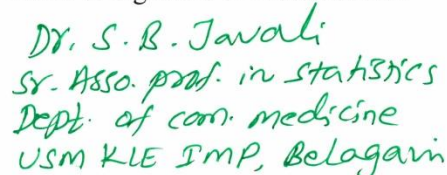 Dr. S. B. Javali
Sr. Asso. prof. in statistics
Dept. of com. medicine
USM KLE IMP, Belagavi